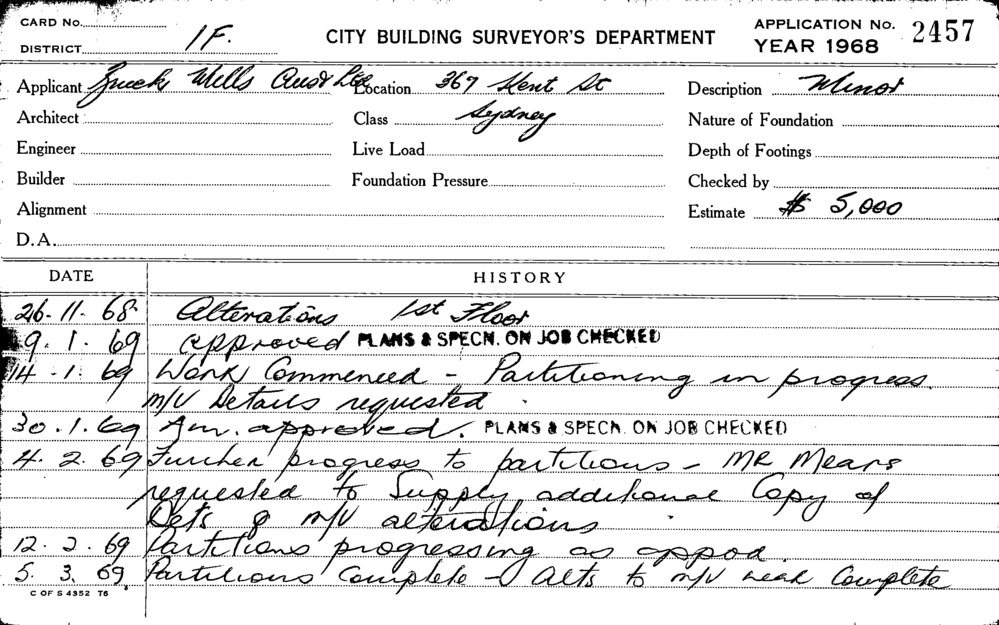 CARD No.
DISTRICT 1F.
CITY BUILDING SURVEYOR'S DEPARTMENT
APPLICATION No. 2457
YEAR 1968
Applicant Wells Aust Ltd
Location 367 Kent St
Description Minor
Architect
Class Sydney
Nature of Foundation
Engineer
Live Load
Depth of Footings
Builder
Foundation Pressure
Checked by
Alignment
Estimate $ 5,000
D.A.
DATE HISTORY
26. 11. 68 Alterations 1st Floor
9. 1. 69 approved PLANS & SPECN. ON JOB CHECKED
14 . 1. 69 Work Commenced - Partitioning in progress.
m/v Details requested.
30. 1. 69 Am. approved. PLANS & SPECN. ON JOB CHECKED
4. 2. 69 Further progress to partitions - MR Mears
requested to Supply additional Copy of
Dets of m/v alterations.
12. 2. 69 Partitions progressing as appod.
5. 3. 69. Partitions Complete - Alts to m/v near Complete
C OF S 4352 T6